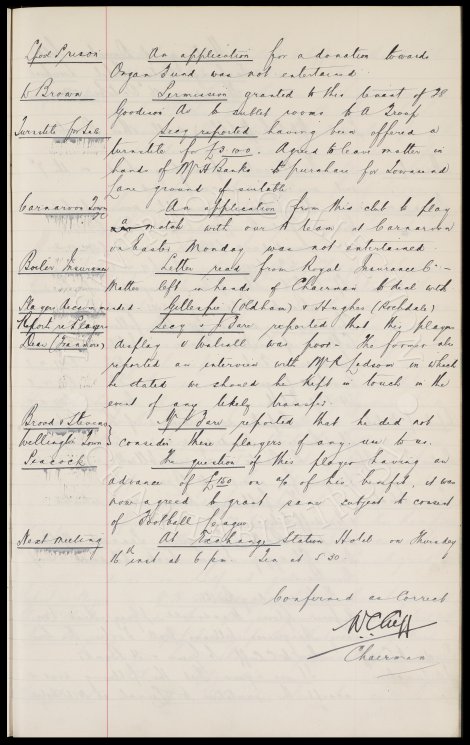 L'pool Prison An application for a donation towards
Organ Fund was not entertained.
W Brown Permission granted to this tenant of 78
Goodison Av to sublet rooms to A Troup
Turnstile for Sale Secy reported having been offered a
turnstile for £3.10.0. Agreed to leave matter in
hands of Mr H Banks to purchase for Townsend
Lane ground if suitable
Carnarvon Town An application from this club to play
a match with our A team at Carnarvon
on Easter Monday was not entertained
Boiler Insurance Letter read from Royal Insurance Co -
Matter left in hands of Chairman to deal with
Players Recommended. Gillespie (Oldham) & Hughes (Rochdale)
Reports re Players Secy & J Fare reported that this players
Dean (Tranmere) display v Walsall was poor. The former also
reported an interview with Mr R Ledsom in which
he stated we should be kept in touch in the
event of any likely transfer.
Brood & Stevens Mr J Fare reported that he did not
Wellington Town } consider these players of any use to us.
Peacock The question of this player having an
advance of £150 on a/c of his benefit, it was
now agreed to grant same subject to consent
of Football League
Next Meeting At Exchange Station Hotel on Thursday
16th inst at 6 pm. Tea at 5.30.
Confirmed as Correct
W.C. Cuff
Chairman